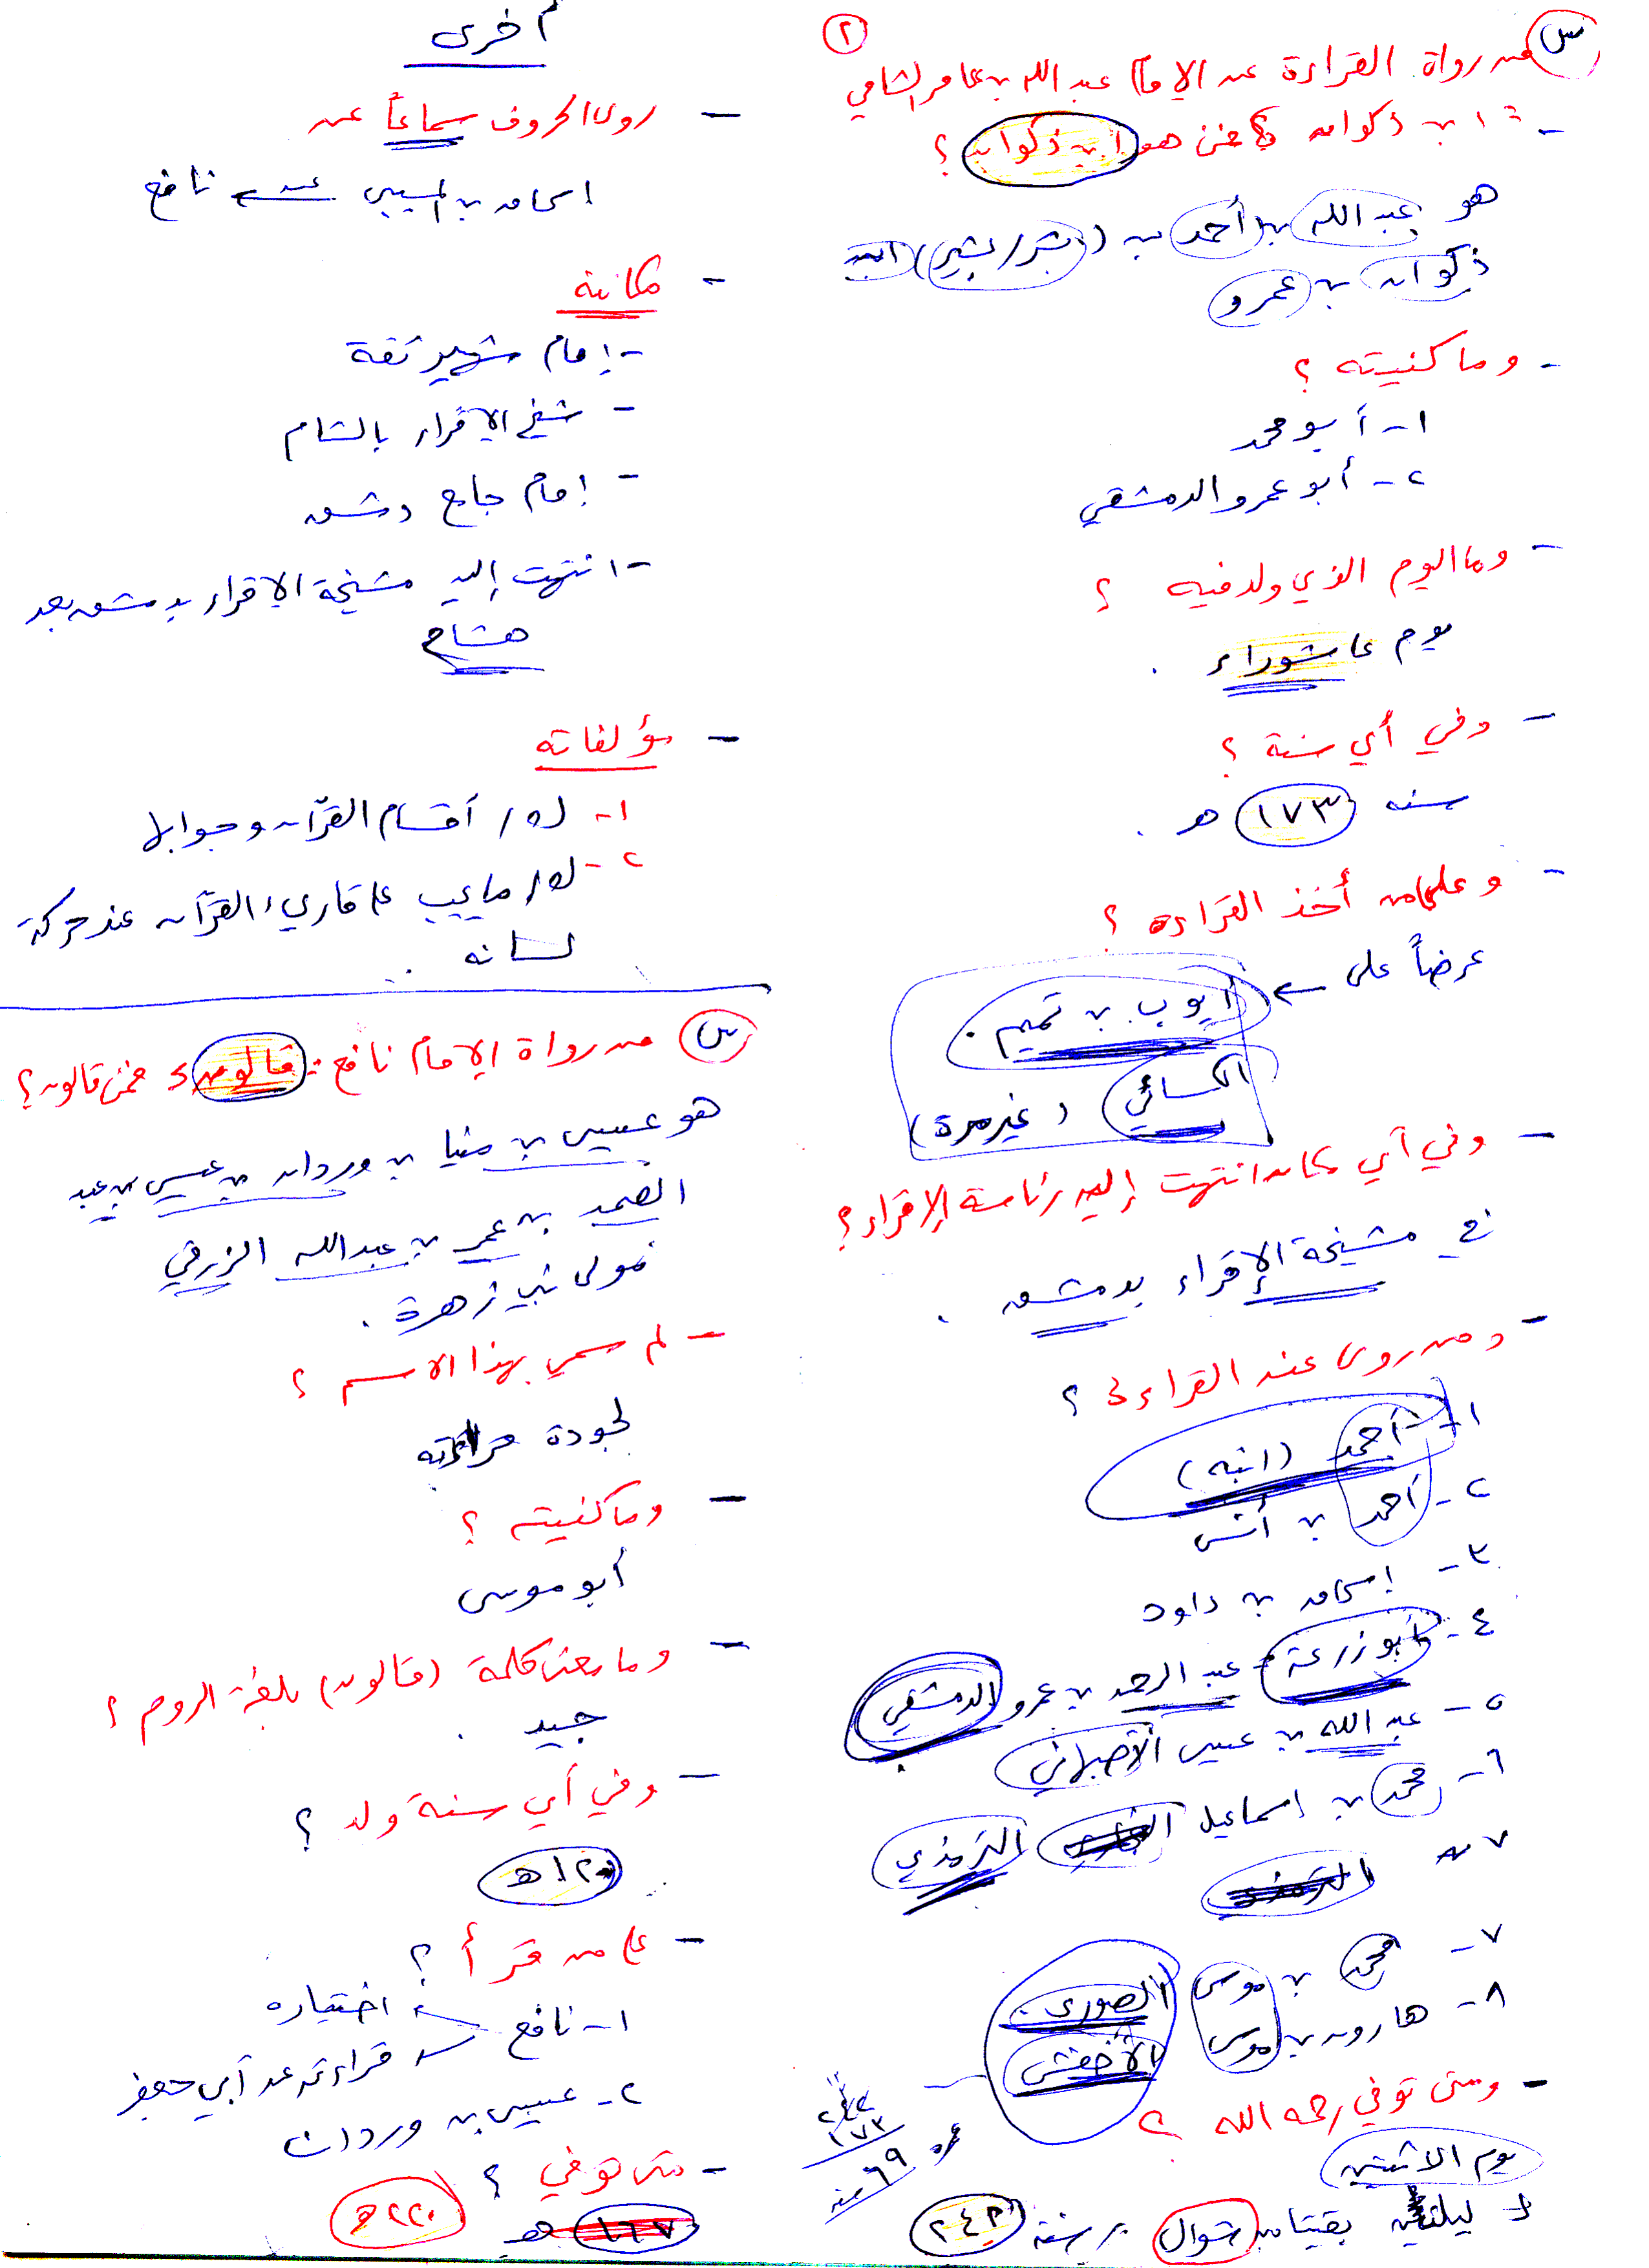 ٢
س من رواة القراءة عن الإمام عبد الله بن عامر الشامي
- ابن ذكوان فمن هو ابن ذكوان ؟
هو عبد الله بن أحمد بن (بشر / بشير) ابن
ذكوان بن عمرو
- وما كنيته ؟
١- أبو محمد
٢- أبو عمرو الدمشقي
- وما اليوم الذي ولد فيه ؟
يوم عاشوراء .
- وفي أي سنة ؟
سنة ١٧٣ هـ .
- وعلى من أخذ القراءة ؟
عرضاً على ← أيوب بن تميم .
الكسائي (غير مرة)
- وفي أي مكان انتهت إليه رئاسة الإقراء ؟
في مشيخة الإقراء بدمشق .
- ومن روى عنه القراءة ؟
١- أحمد (ابنه)
٢- أحمد بن أنس
٣- إسحاق بن داود
٤- أبو زرعة عبد الرحمن بن عمرو الدمشقي
٥- عبد الله بن عيسى الأصبهاني
٦- محمد بن إسماعيل الترمذي
٧- الترمذي
٧- محمد بن موسى الصوري
٨- هارون بن موسى الأخفش
- ومتى توفي رحمه الله ؟
يوم الاثنين
لليلتين بقيتا من شوال سنة ٢٤٢
٢٤٢
١٧٣
عمره ٦٩ سنة
أخرى
- روى الحروف سماعاً عن
إسحاق بن المسيبي عن نافع
- مكانته
- إمام شهير ثقة
- شيخ الإقراء بالشام
- إمام جامع دمشق
- انتهت إليه مشيخة الإقراء بدمشق بعد
هشام
- مؤلفاته
١- له / أقسام القرآن وجوابها
٢- له / ما يجب على قارىء القرآن عند حركة
لسانه .
س من رواة الإمام نافع : قالون ، فمن قالون ؟
هو عيسى بن مينا بن وردان بن عيسى بن عبد
الصمد بن عمر بن عبد الله الزرقي
مولى بني زهرة .
- لم سمي بهذا الاسم ؟
لجودة قراءته
- وما كنيته ؟
أبو موسى
- وما معنى كلمة (قالون) بلغة الروم ؟
جيد .
- وفي أي سنة ولد ؟
١٢٠ هـ
- على من قرأ ؟
١- نافع اختياره
قراءته عن أبي جعفر
٢- عيسى بن وردان
- متى توفي ؟
١٦٧ هـ ٢٢٠ هـ